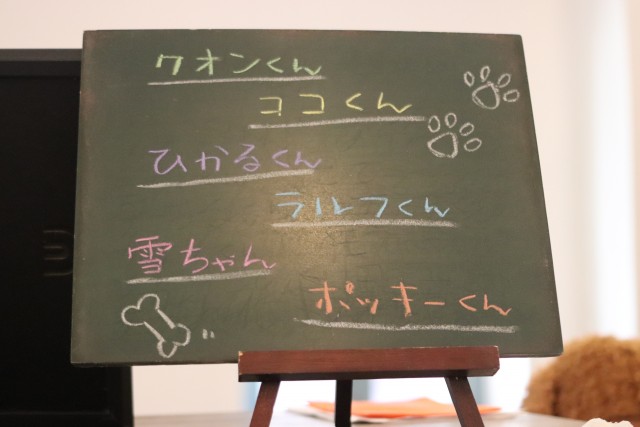 クオンくん
ココくん
ひかるくん
ラルフくん
雪ちゃん
ポッキーくん